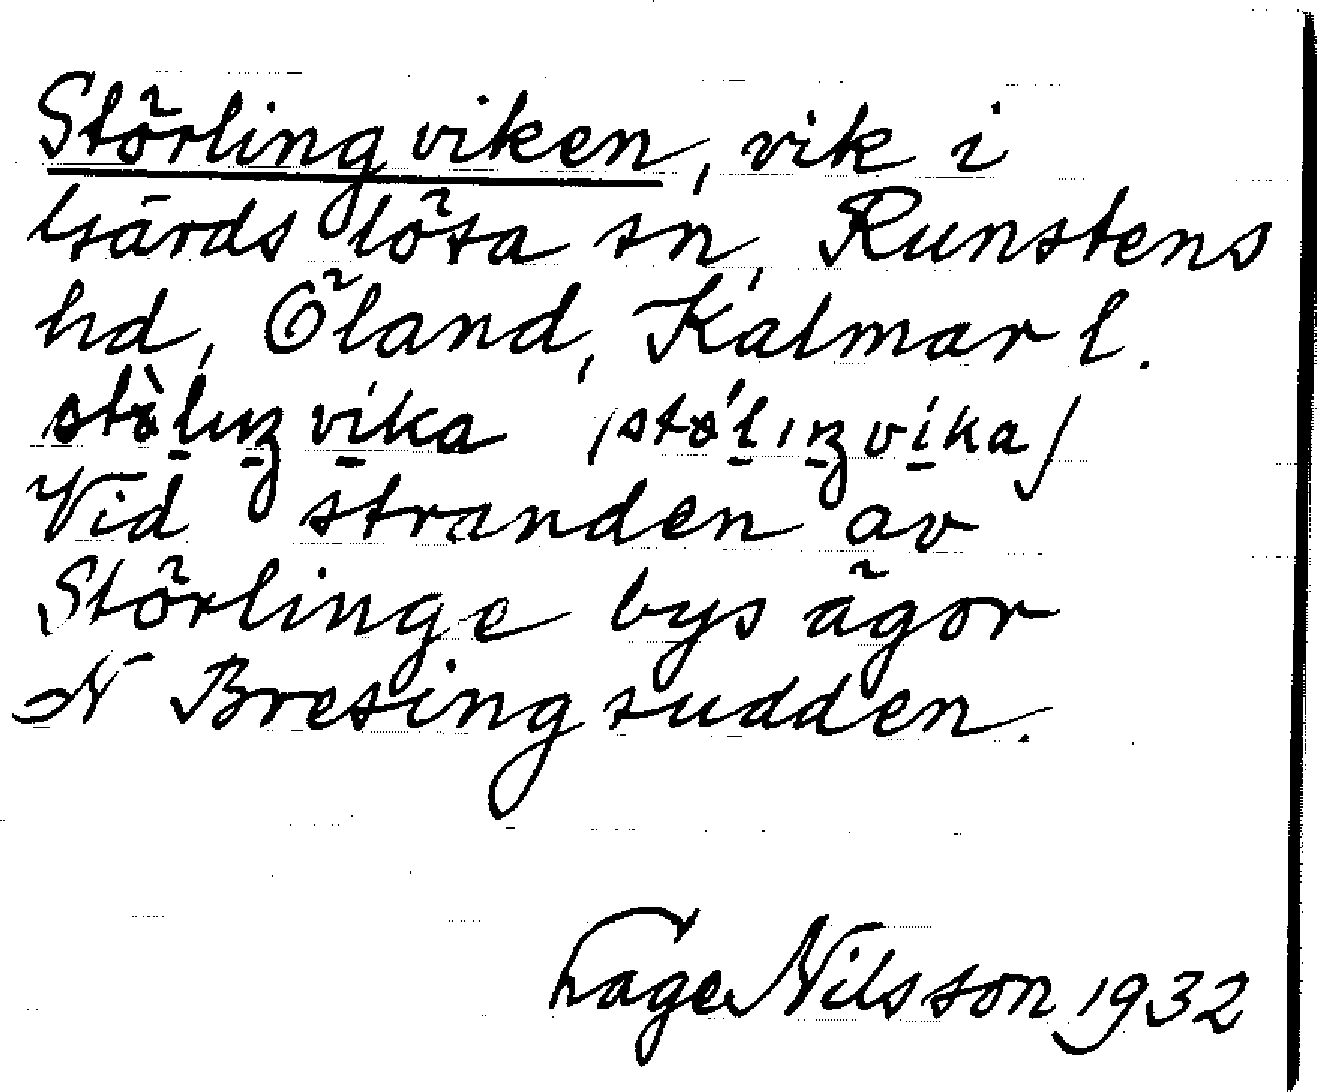 Störlingviken, vik i
Gärdslösa sn, Runstens
hd, Öland, Kalmar l.
Vid stranden av
Störlinge bys ägor
N Bresingsudden.
Tage Nilsson 1932